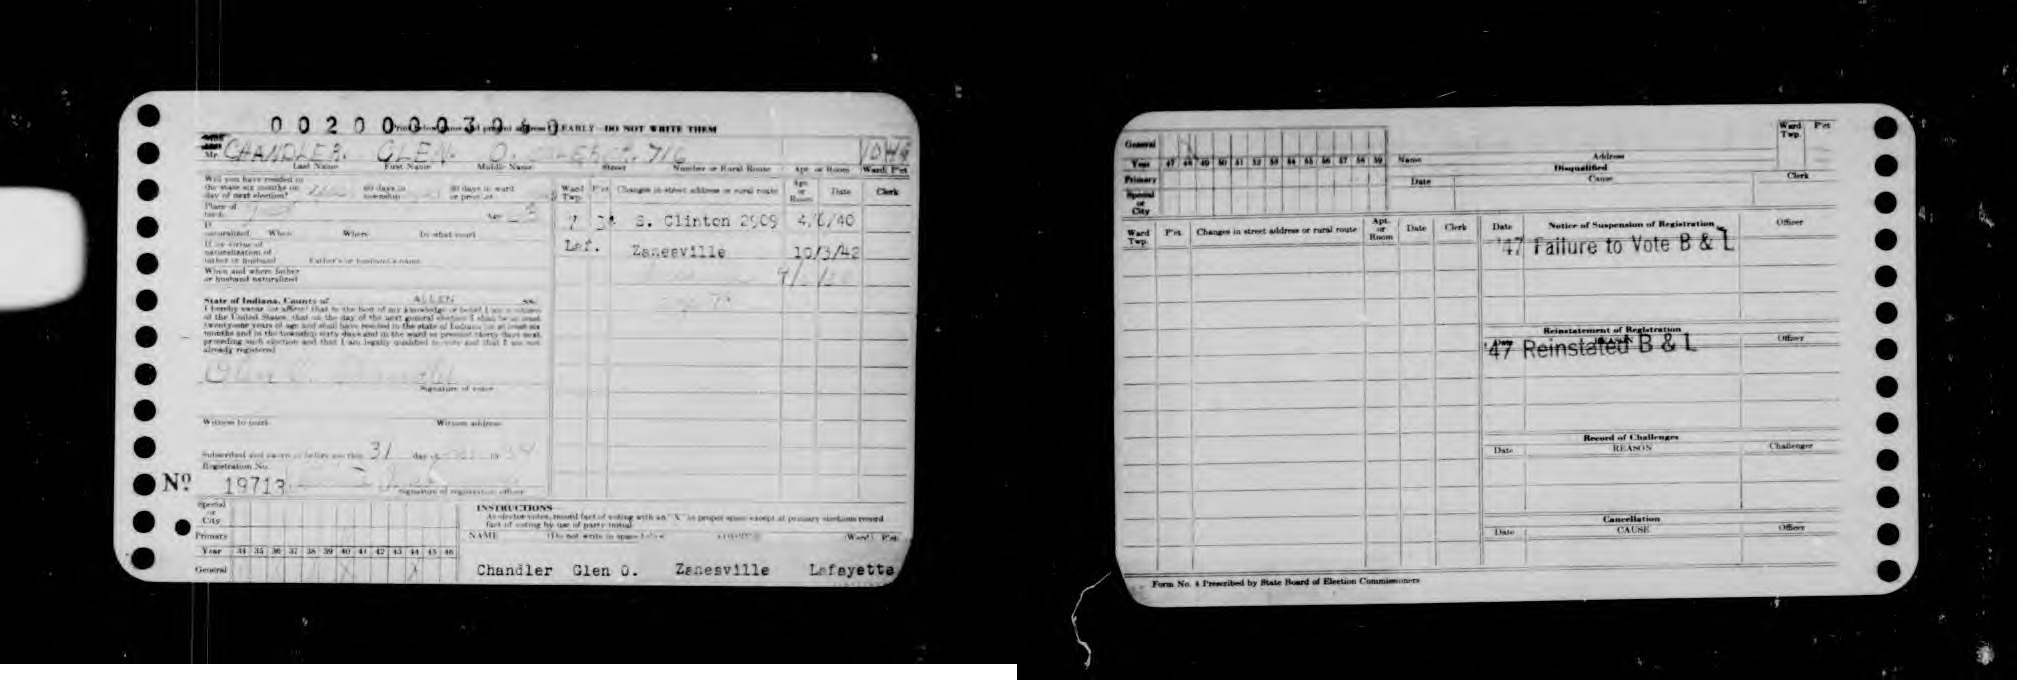 00200003040
EARLY - DO NOT WRITE THEM
Mr. CHANDLER. GLEN. O. 716
Last Name First Name Middle Name Street Number or Rural Route Apt. or Room Ward P'ct
Will you have resided in
the state six months on 60 days in 30 days in ward
day of next election? township or precinct
Place of
birth Age
If
naturalized When Where In what court
If by virtue of
naturalization of
father or husband Father's or husband's name
When and where father
or husband naturalized
State of Indiana, County of ALLEN ss.
I hereby swear (or affirm) that to the best of my knowledge or belief I am a citizen
of the United States, that on the day of the next general election I shall be at least
twenty-one years of age and shall have resided in the state of Indiana for at least six
months and in the township sixty days and in the ward or precinct thirty days next
preceding such election and that I am legally qualified to vote and that I am not
already registered
Signature of voter
Witness to mark Witness address
Subscribed and sworn to before me this 31 day of 19 34
Registration No.
Nº 19713
Signature of registration officer
Ward Twp. P'ct Changes in street address or rural route Apt. or Room Date Clerk
S. Clinton 2909 4/6/40
Laf. Zanesville 10/3/42
Special
or
City
Primary
Year 34 35 36 37 38 39 40 41 42 43 44 45 46
General X X
INSTRUCTIONS
As elector votes, record fact of voting with an "X" in proper space except at primary elections record
fact of voting by use of party initial
NAME (Do not write in space below) (Ward) P'ct
Chandler Glen O. Zanesville Lafayette
General
Year 47 48 49 50 51 52 53 54 55 56 57 58 59
Primary
Special
or
City
Name Address Ward Twp. P'ct
Disqualified
Date Cause Clerk
Ward Twp. P'ct Changes in street address or rural route Apt. or Room Date Clerk
Date Notice of Suspension of Registration Officer
'47 Failure to Vote B & L
Reinstatement of Registration
Officer
'47 Reinstated B & L
Record of Challenges
Date REASON Challenger
Cancellation
Date CAUSE Officer
Form No. 4 Prescribed by State Board of Election Commissioners